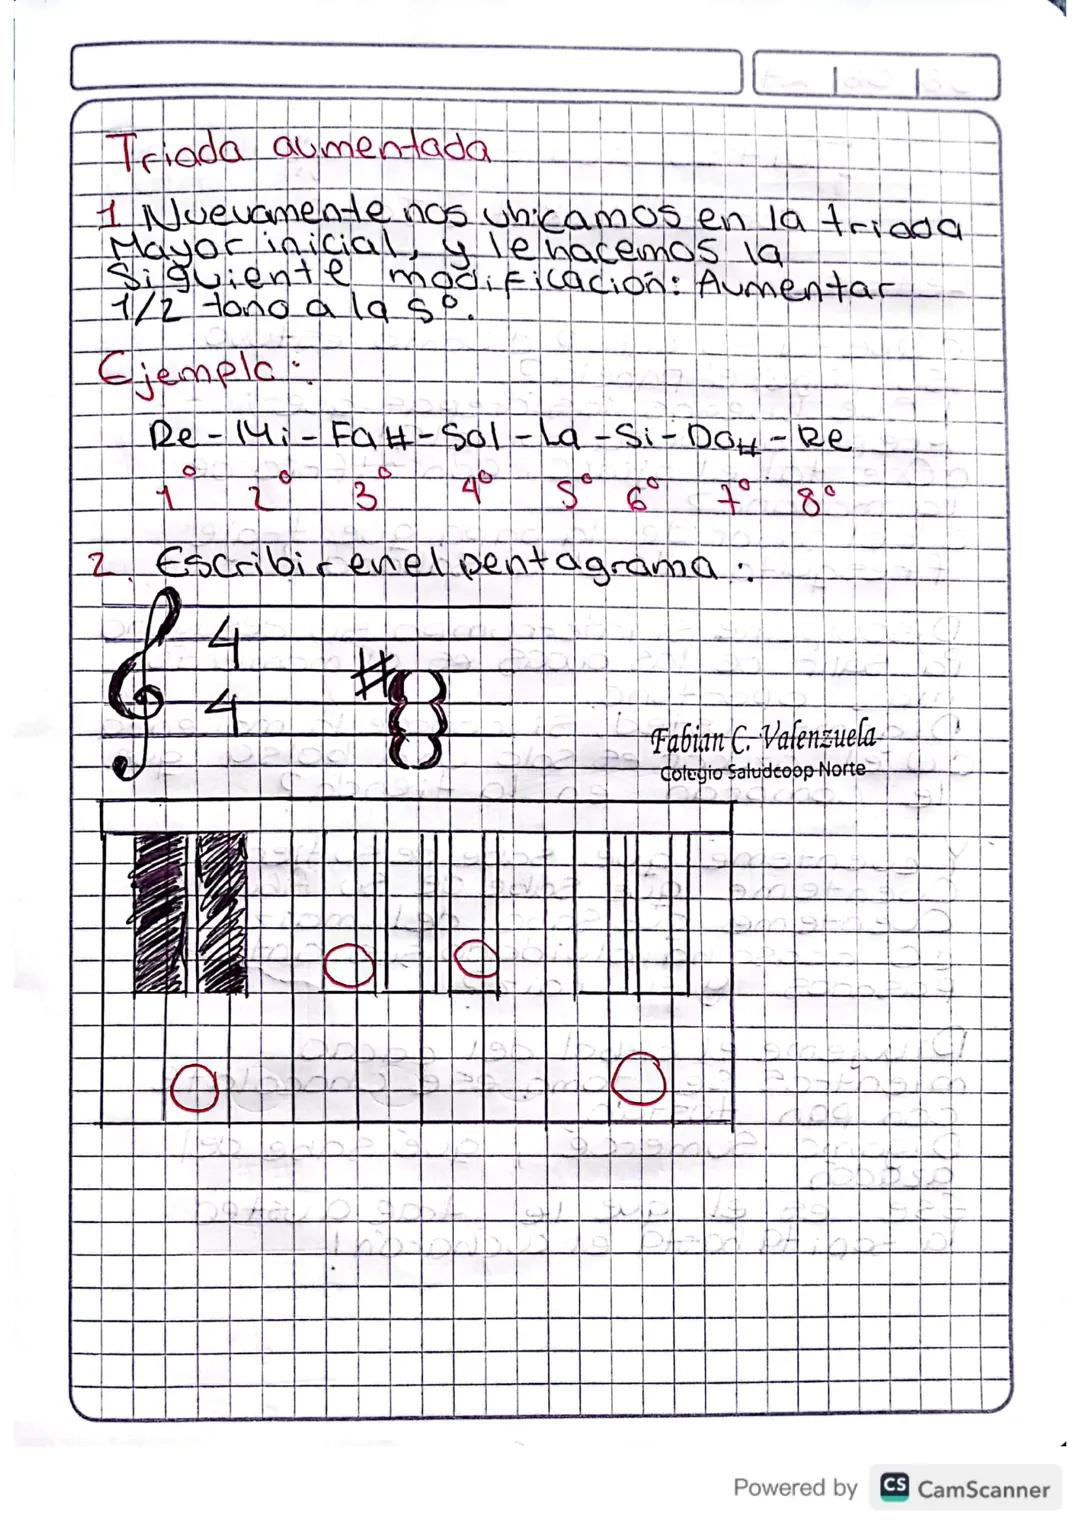 Triada aumentada
1 Nuevamente nos ubicamos en la triada
Mayor inicial, y le hacemos la
siguiente modificación: Aumentar
1/2 tono a la 5º.
Ejemplo:
Re - Mi - Fa# - Sol - La - Si - Do# - Re
1º 2º 3º 4º 5º 6º 7º 8º
2. Escribir en el pentagrama:
4
4
#
Fabian C. Valenzuela
Colegio Saludcoop Norte
Powered by CS CamScanner